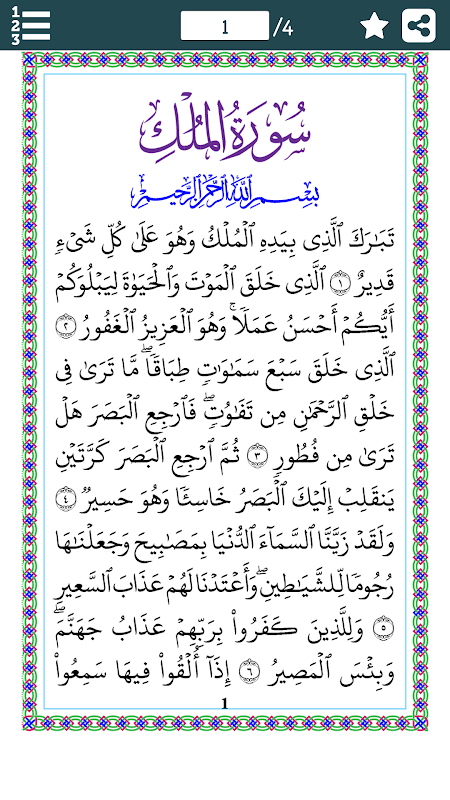 1
2
3
1
/4
سُورَةُ الْمُلْكِ
بِسْمِ اللَّهِ الرَّحْمَٰنِ الرَّحِيمِ
تَبَٰرَكَ ٱلَّذِى بِيَدِهِ ٱلْمُلْكُ وَهُوَ عَلَىٰ كُلِّ شَىْءٍ
قَدِيرٌ ١ ٱلَّذِى خَلَقَ ٱلْمَوْتَ وَٱلْحَيَوٰةَ لِيَبْلُوَكُمْ
أَيُّكُمْ أَحْسَنُ عَمَلًا ۚ وَهُوَ ٱلْعَزِيزُ ٱلْغَفُورُ ٢
ٱلَّذِى خَلَقَ سَبْعَ سَمَٰوَٰتٍ طِبَاقًا ۖ مَّا تَرَىٰ فِى
خَلْقِ ٱلرَّحْمَٰنِ مِن تَفَٰوُتٍ ۖ فَٱرْجِعِ ٱلْبَصَرَ هَلْ
تَرَىٰ مِن فُطُورٍ ٣ ثُمَّ ٱرْجِعِ ٱلْبَصَرَ كَرَّتَيْنِ
يَنقَلِبْ إِلَيْكَ ٱلْبَصَرُ خَاسِئًا وَهُوَ حَسِيرٌ ٤
وَلَقَدْ زَيَّنَّا ٱلسَّمَآءَ ٱلدُّنْيَا بِمَصَٰبِيحَ وَجَعَلْنَٰهَا
رُجُومًا لِّلشَّيَٰطِينِ ۖ وَأَعْتَدْنَا لَهُمْ عَذَابَ ٱلسَّعِيرِ
٥ وَلِلَّذِينَ كَفَرُوا۟ بِرَبِّهِمْ عَذَابُ جَهَنَّمَ ۖ
وَبِئْسَ ٱلْمَصِيرُ ٦ إِذَآ أُلْقُوا۟ فِيهَا سَمِعُوا۟
1